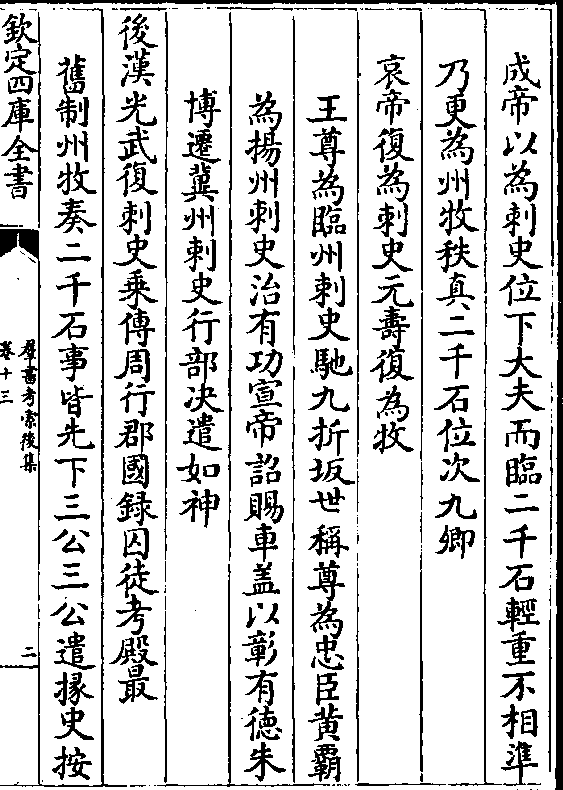 成帝以為刺史位下大夫而臨二千石輕重不相準
乃更為州牧秩真二千石位次九卿
哀帝復為刺史元壽復為牧
王尊為臨州刺史馳九折坂世稱尊為忠臣黄霸
為揚州刺史治有功宣帝詔賜車盖以彰有徳朱
博遷冀州刺史行部决遣如神
後漢光武復刺史乗傳周行郡國録囚徒考殿最
舊制州牧奏二千石事皆先下三公三公遣掾史按
欽定四庫全書
羣書考索後集
卷十三
二